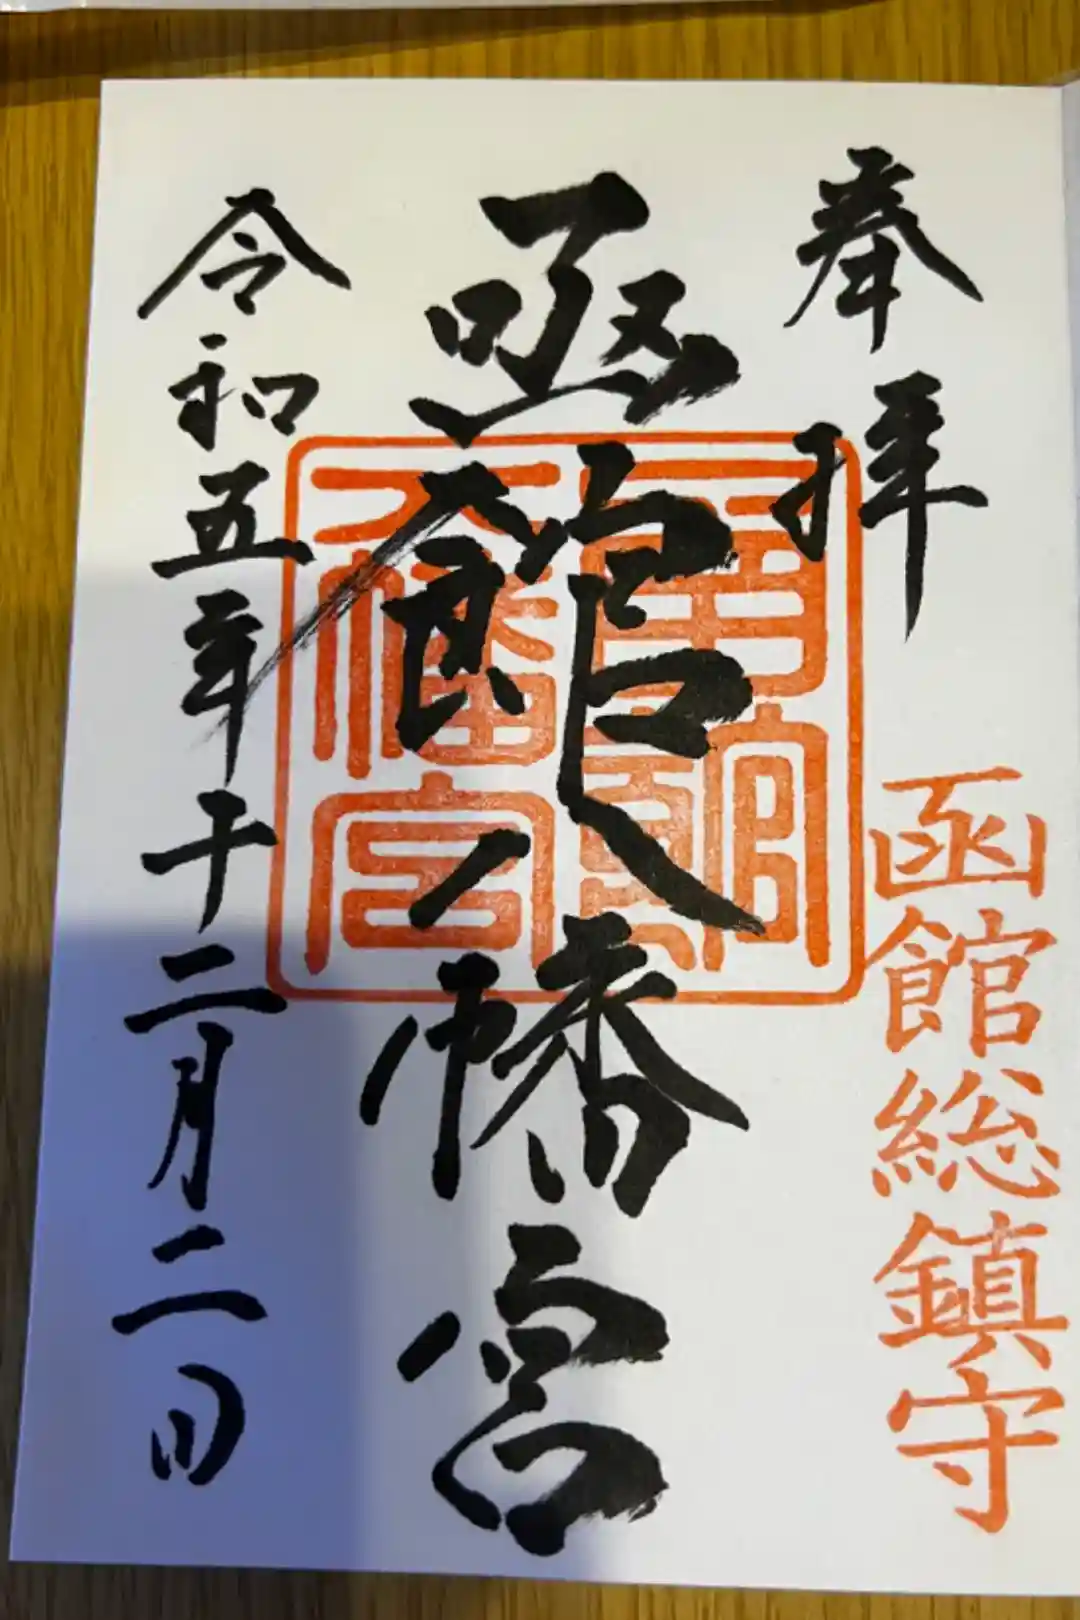 奉拝
函館総鎮守
函館八幡宮
令和五年十二月二日